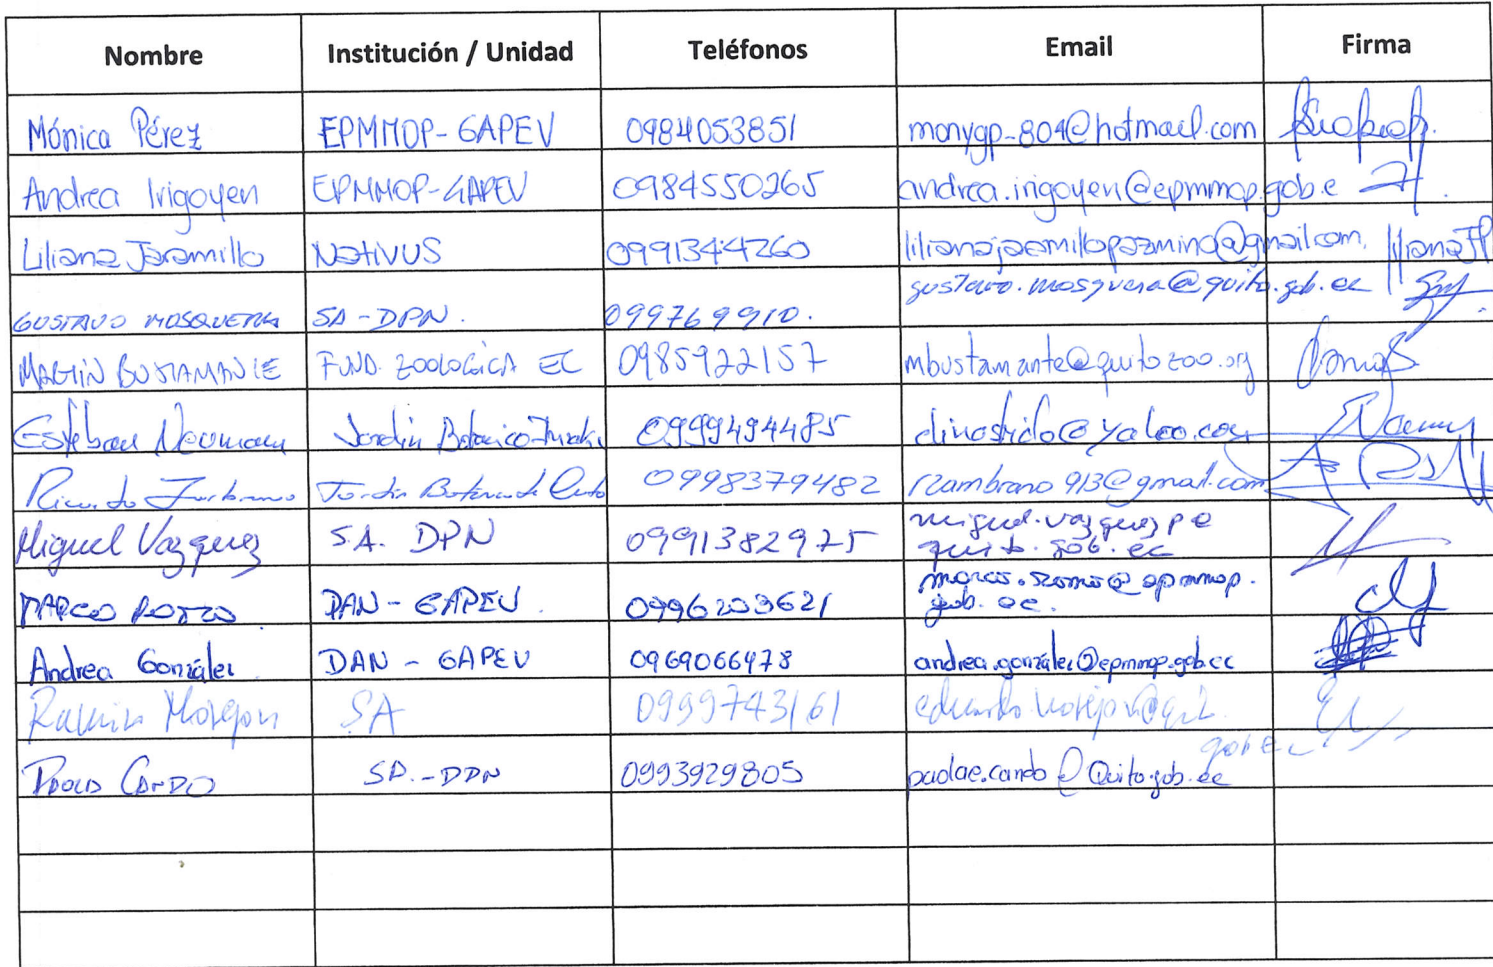 Nombre Institución / Unidad Teléfonos Email Firma
Mónica Pérez EPMMOP-GAPEV 0984053851 monygp-804@hotmail.com
Andrea Irigoyen EPMMOP-GAPEV 0984550265 andrea.irigoyen@epmmop.gob.e
Liliana Jaramillo Nativus 0991344260 lilianajaramillopazmino@gmail.com. liliana JP
gustavo.mosquera@quito.gob.ec
GUSTAVO MOSQUERA SA-DPN. 099769910.
MARTIN BUSTAMANTE FUND. ZOOLOGICA EC 0985922157 mbustamante@quitozoo.org
Esteban Neumann Jardin Botanico 0999494485
Ricardo Zambrano Jardin Botanico de Quito 0998379482 rzambrano913@gmail.com
Miguel Vazquez S.A. DPN 0991382975 miguel.vazquezp@
quito.gob.ec
MARCO DAN-GAPEV. 0996203621 epmmop.
gob.ec.
Andrea González DAN - GAPEV 0969066478 andrea.gonzález@epmmop.gob.ec
Ramiro Morejon SA 0999743161 eduardo.morejon@quit.
gob.ec
PAOLA CANDO SA.-DPN 0993929805 paolae.cando@Quito.gob.ec